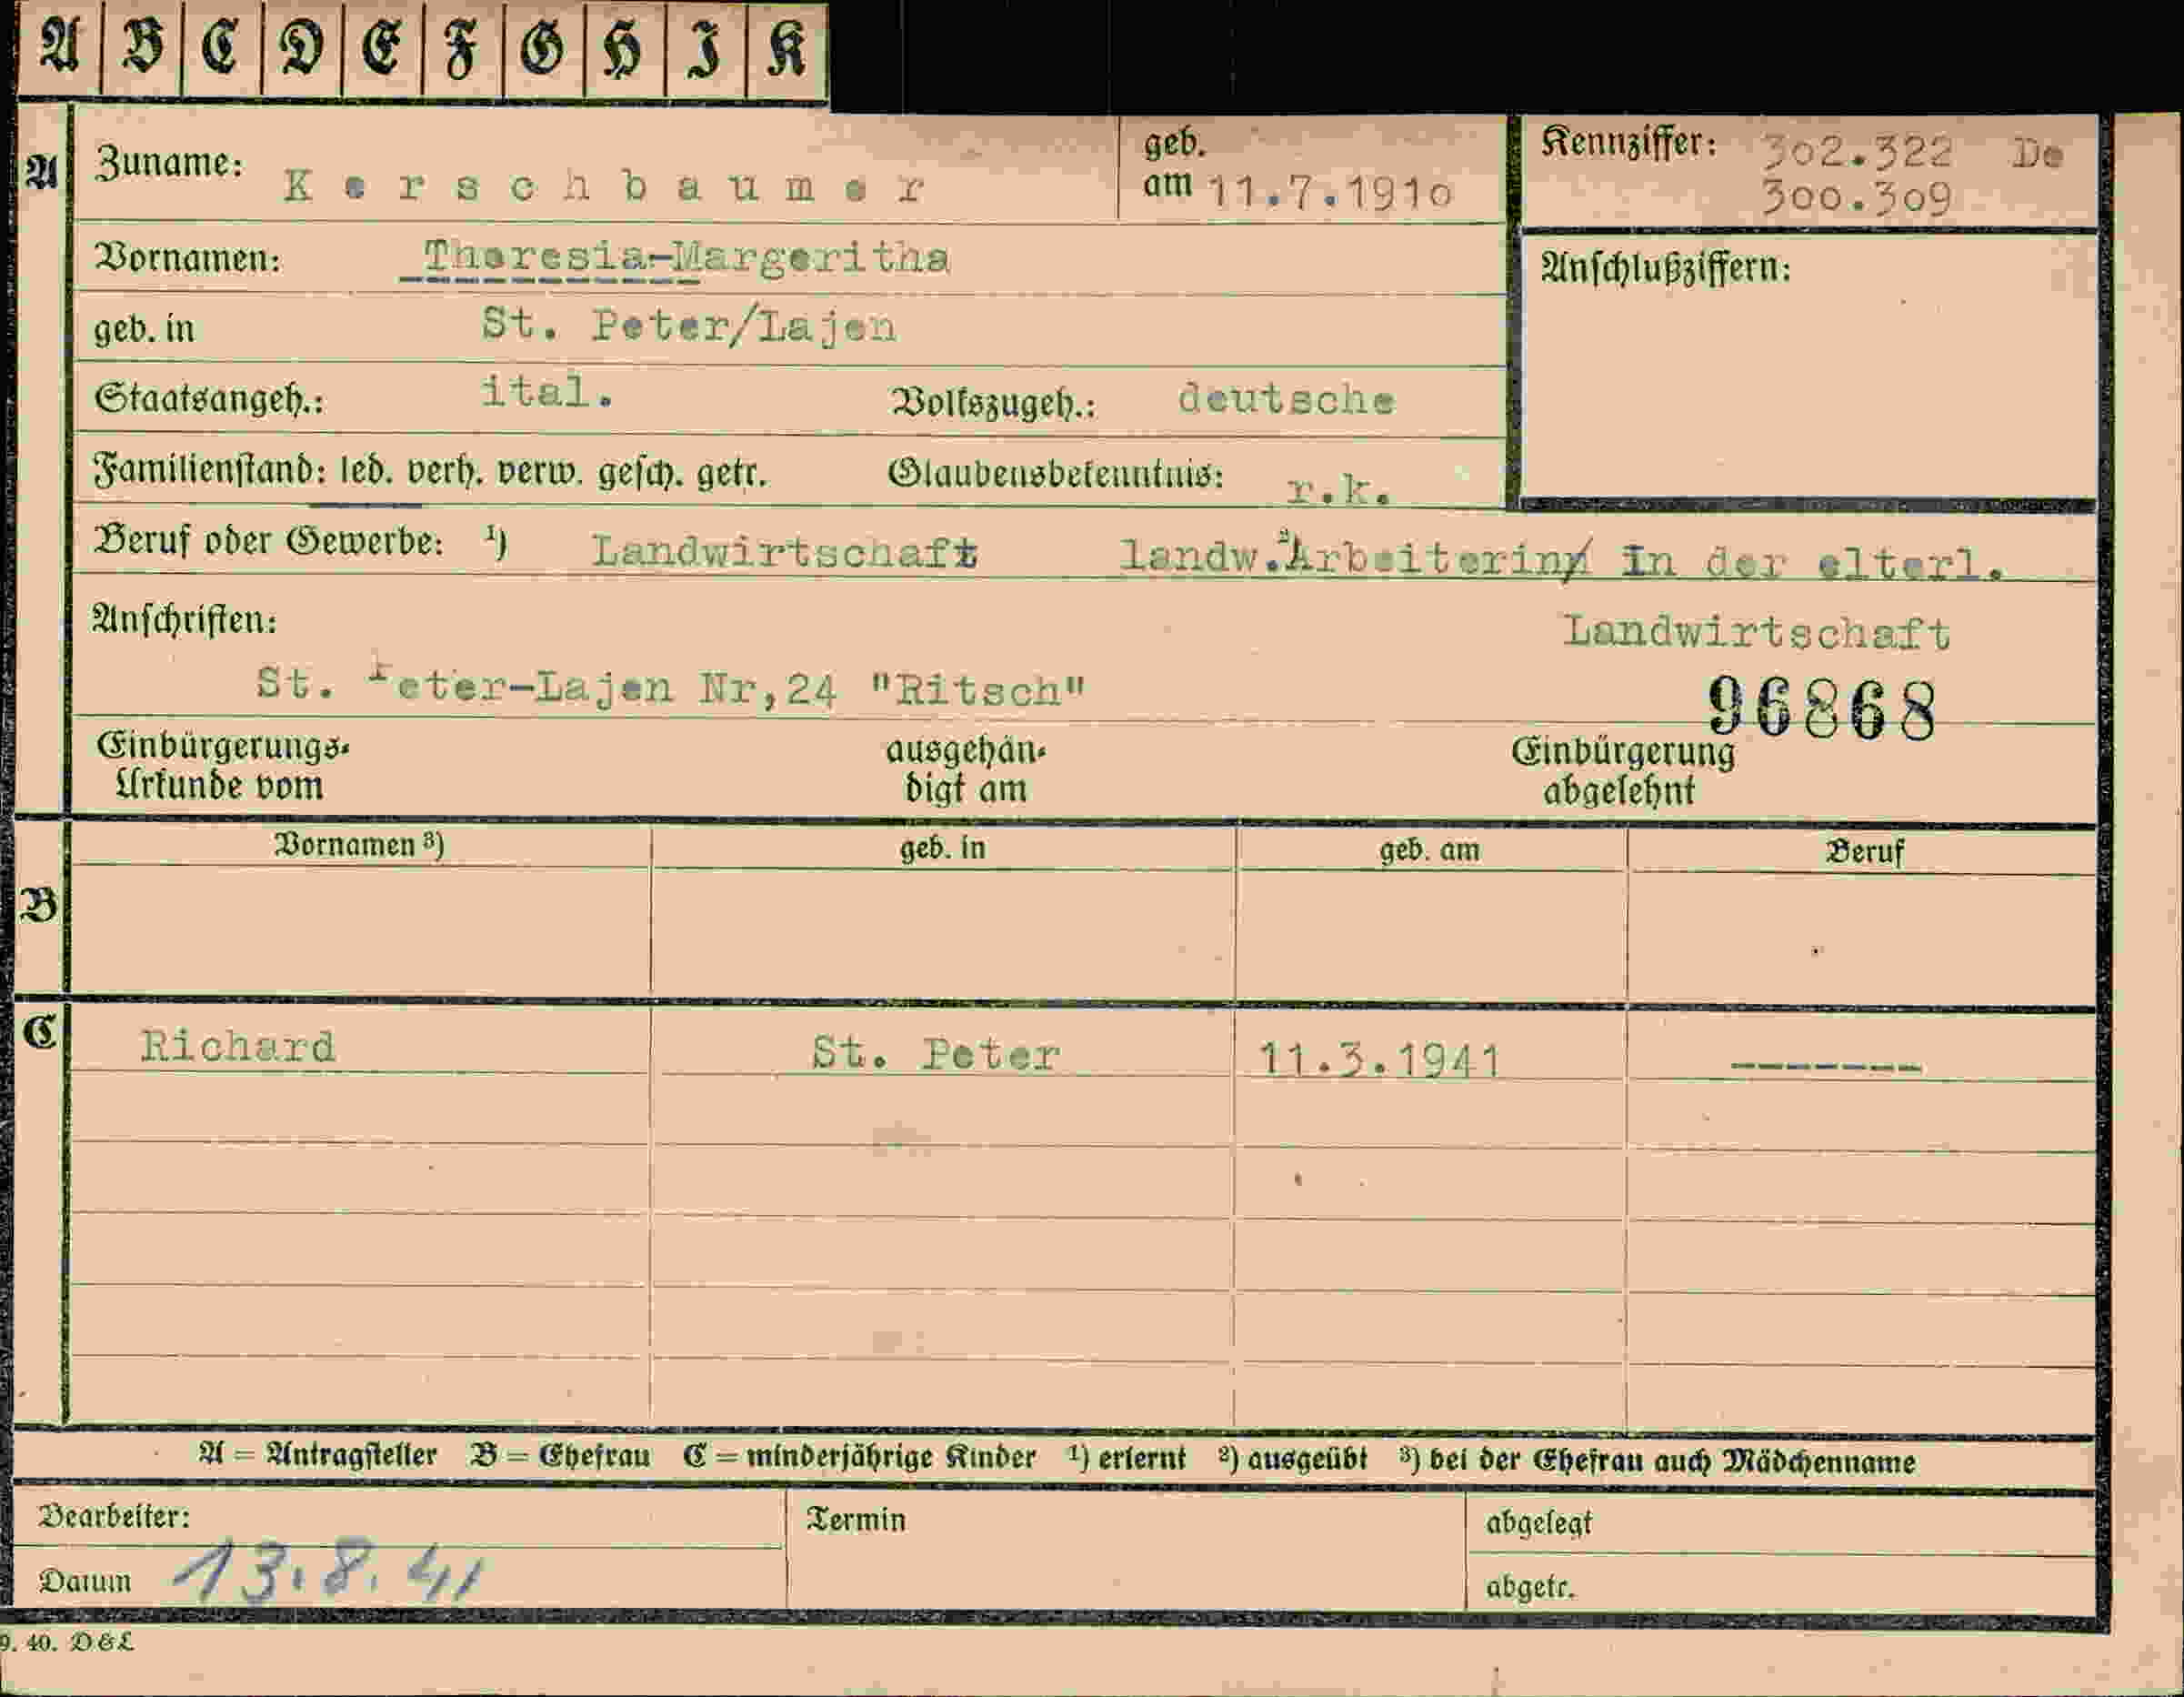 A B C D E F G H I K
A Zuname: Kerschbaumer geb. am 11.7.1910 Kennziffer: 302.322 De
300.309
Vornamen: Theresia-Margeritha Anschlußziffern:
geb. in St. Peter/Lajen
Staatsangeh.: ital. Volkszugeh.: deutsche
Familienstand: led. verh. verw. gesch. getr. Glaubensbekenntnis: r.k.
Beruf oder Gewerbe: ¹) Landwirtschaft landw. ²) Arbeiterin in der elterl.
Anschriften: Landwirtschaft
St. Peter-Lajen Nr,24 "Ritsch" 96868
Einbürgerungs- ausgehän- Einbürgerung
Urkunde vom digt am abgelehnt
Vornamen ³) geb. in geb. am Beruf
B
C Richard St. Peter 11.3.1941 -------
A = Antragsteller B = Ehefrau C = minderjährige Kinder ¹) erlernt ²) ausgeübt ³) bei der Ehefrau auch Mädchenname
Bearbeiter: Termin abgelegt
Datum 13.8.41 abgetr.
9. 40. D&L